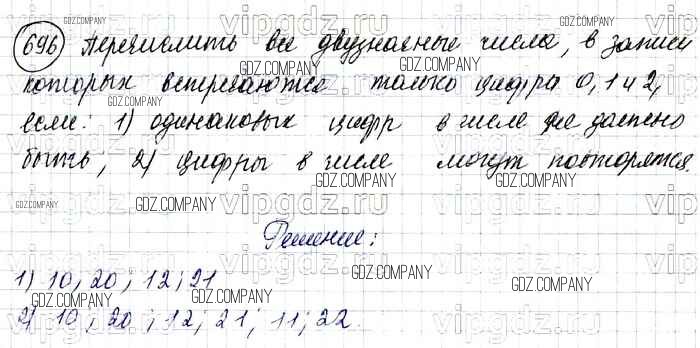 696 Перечислить все двузначные числа, в записи
которых встречаются только цифра 0, 1 и 2,
если: 1) одинаковых цифр в числе не должно
быть; 2) цифры в числе могут повторятся.
Решение:
1) 10; 20; 12; 21
2) 10; 20; 12; 21; 11; 22.
GDZ.COMPANY
vipgdz.ru